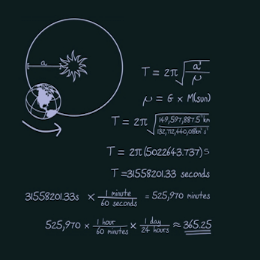 a
T = 2π √(a³/μ)
μ = G × M(sun)
T = 2π √(149,597,887.5 km / 132,712,440,018 km³ s)
T = 2π(5022643.737)s
T = 31558201.33 seconds
31558201.33s × 1 minute / 60 seconds = 525,970 minutes
525,970 × 1 hour / 60 minutes × 1 day / 24 hours ≈ 365.25